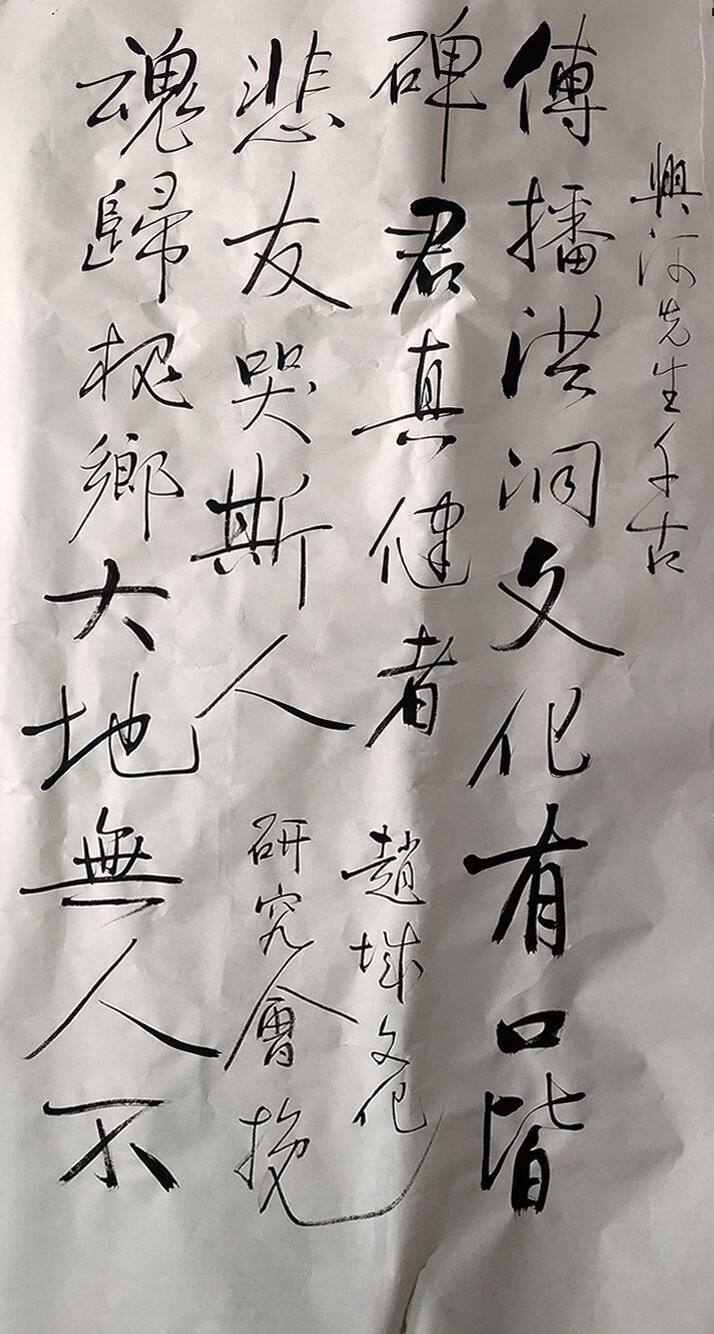 興河先生千古
傳播洪洞文化有口皆
碑君真健者
魂歸槐鄉大地無人不
悲友哭斯人
趙城文化
研究會挽